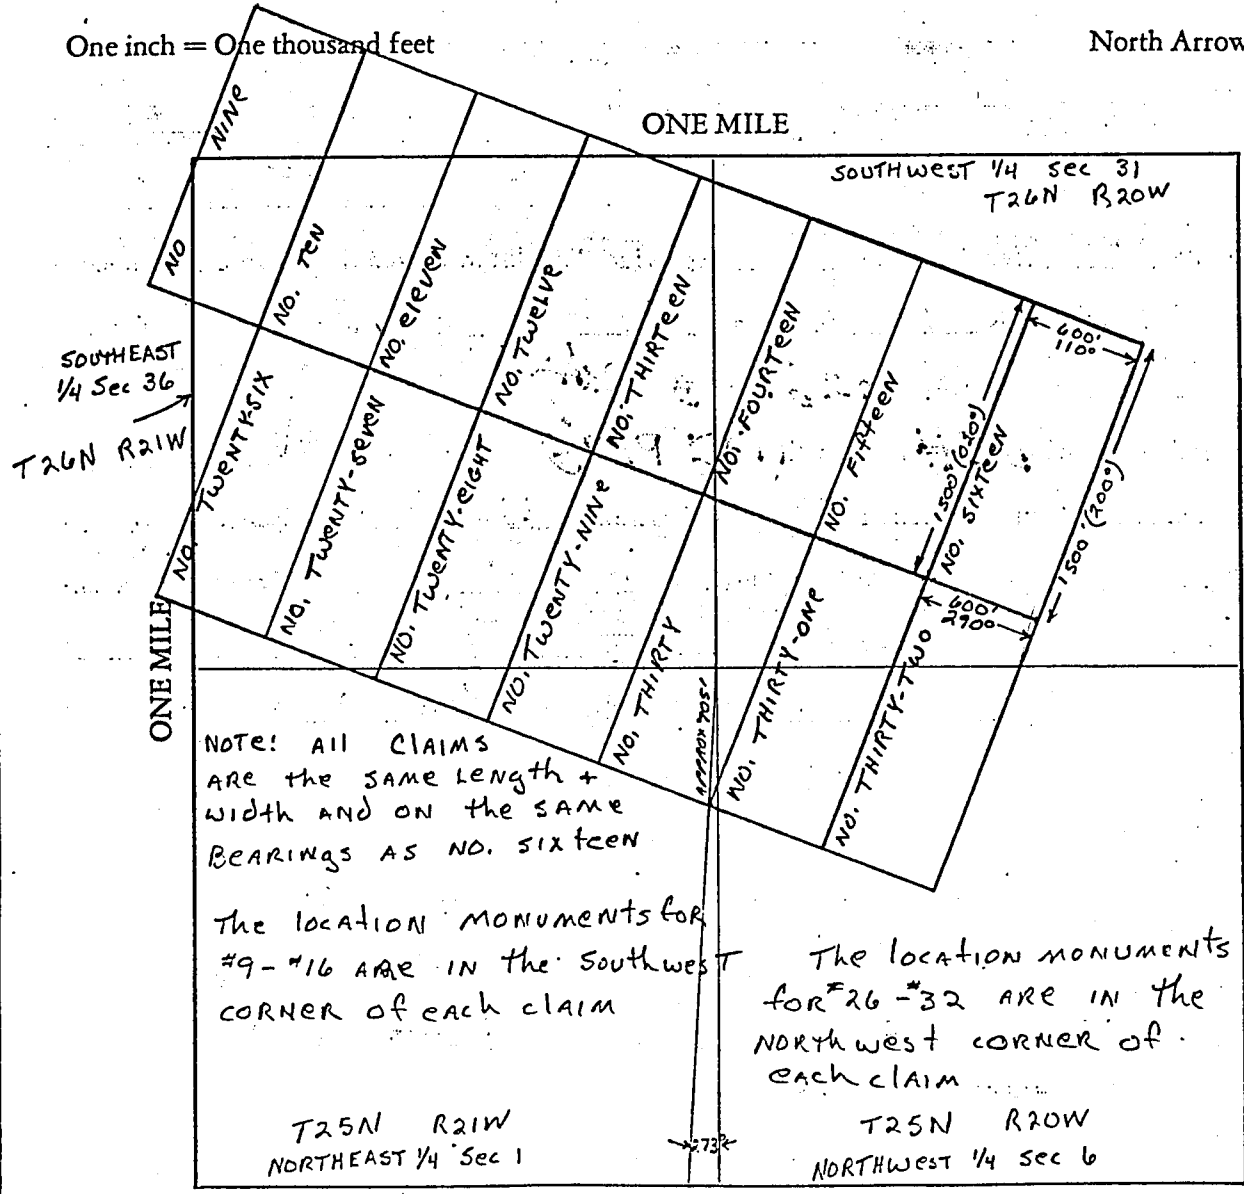 One inch = One thousand feet
North Arrow
ONE MILE
SOUTHWEST 1/4 Sec 31
T26N R20W
NO NINE
NO. TEN
NO. ELEVEN
NO. TWELVE
NO. THIRTEEN
NO. FOURTEEN
NO. FIFTEEN
NO. SIXTEEN
600'
110°
1500' (020°)
1500' (200°)
SOUTHEAST
1/4 Sec 36
T26N R21W
NO. TWENTY-SIX
NO. TWENTY-SEVEN
NO. TWENTY-EIGHT
NO. TWENTY-NINE
NO. THIRTY
NO. THIRTY-ONE
NO. THIRTY-TWO
600'
290°
ONE MILE
APPROX 705'
NOTE: All CLAIMS
ARE the SAME LENgth +
width AND ON the SAME
BEARINgs AS NO. SIXteen
The locAtion MONUMENts foR
#9 - #16 ARE IN the Southwest
CORNER of eAch claim
The locAtion MONUMENTS
foR #26 - #32 ARE IN the
NORthwest CORNER of
eAch claim
T25N R21W
NORTHEAST 1/4 Sec 1
273'
T25N R20W
NORTHWEST 1/4 Sec 6